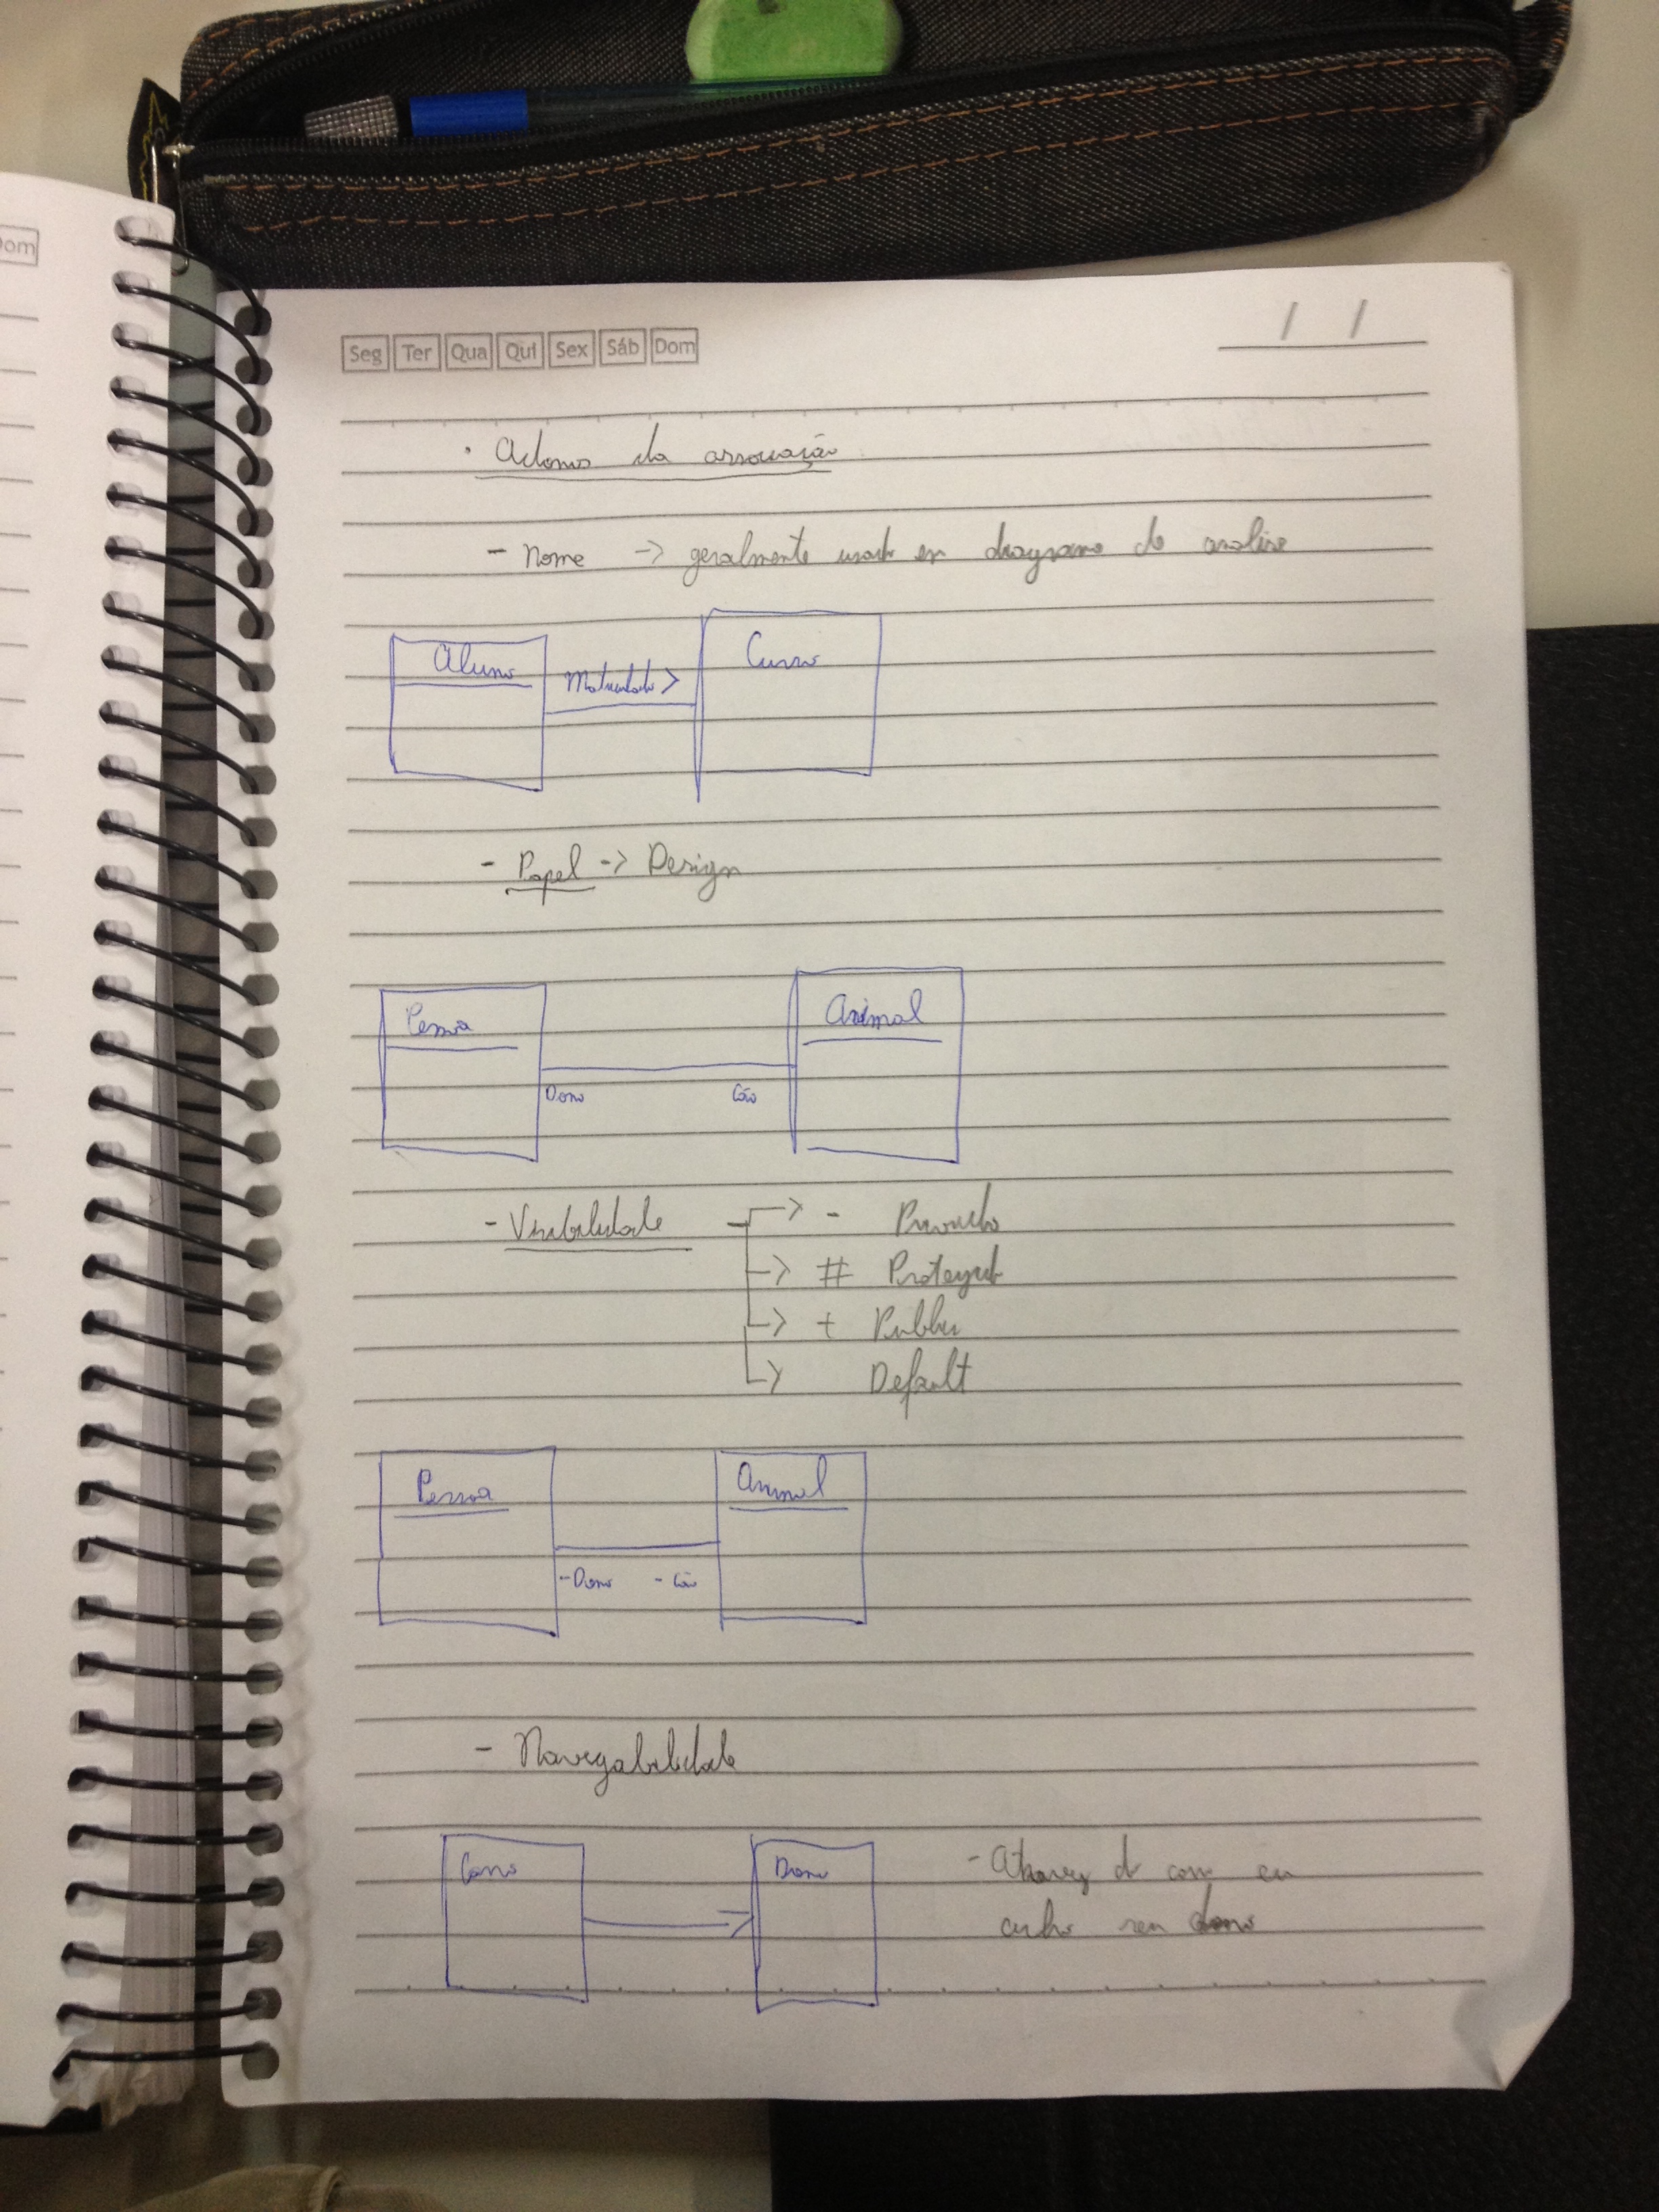 Dom
Seg Ter Qua Qui Sex Sáb Dom
/ /
• Adornos da associação
- Nome -> geralmente usado em diagrama de analise
Aluno Matriculado > Curso
- Papel -> Design
Pessoa Animal
Dono Cão
- Visibilidade -> - Privado
-> # Protegido
-> + Publico
-> Default
Pessoa Animal
-Dono - Cão
- Navegabilidade
Carro Dono
- Atraves do carro eu
acho seu dono